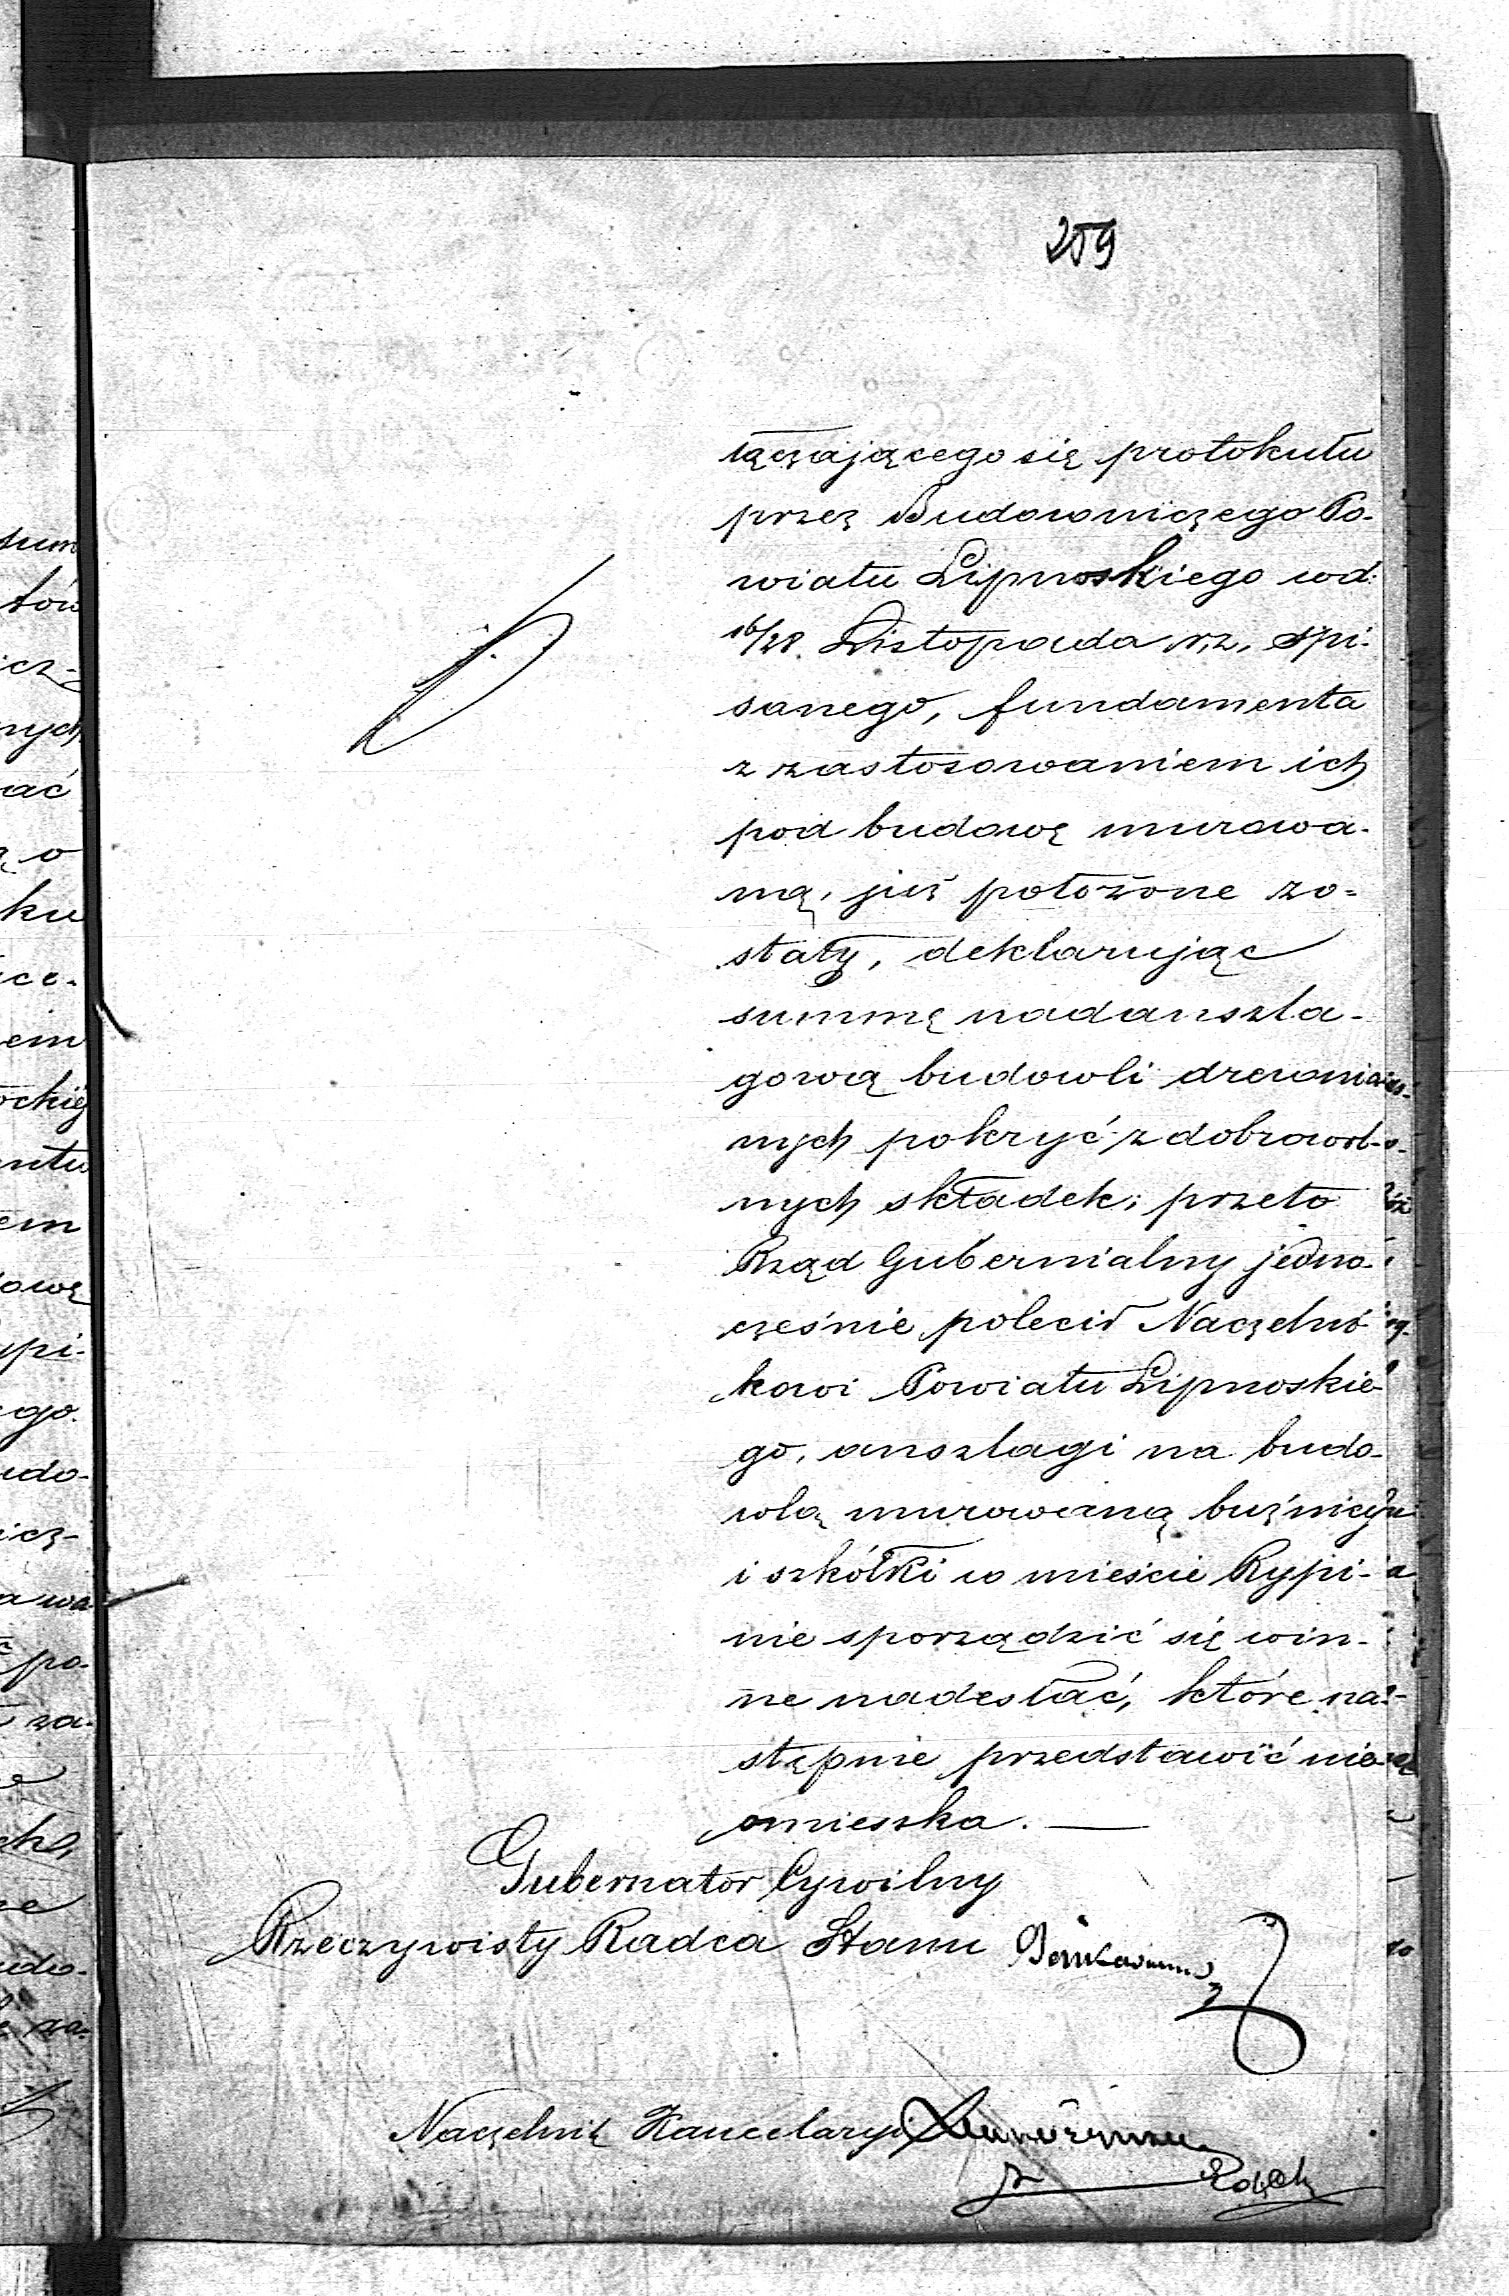 259
łączającego się protokułu
przez Budowniczego Po-
wiatu Lipnoskiego w d:
16/28. Listopada r. z. spi-
sanego, fundamenta
z zastosowaniem ich
pod budowę murowa-
ną, już położone zo-
stały, deklarując
summę nadanszla-
gową budowli drewnia-
nych pokryć z dobrowol-
nych składek; przeto
Rząd Gubernialny jedno-
cześnie polecił Naczelni-
kowi Powiatu Lipnoskie-
go, anszlagi na budo-
wlą murowaną buźnicy
i szkółki w mieście Rypi-
nie sporządzić się win-
ne nadesłać, które na-
stępnie przedstawić nie-
omieszka. —
Gubernator Cywilny
Rzeczywisty Radca Stanu
Naczelnik Kancelaryi